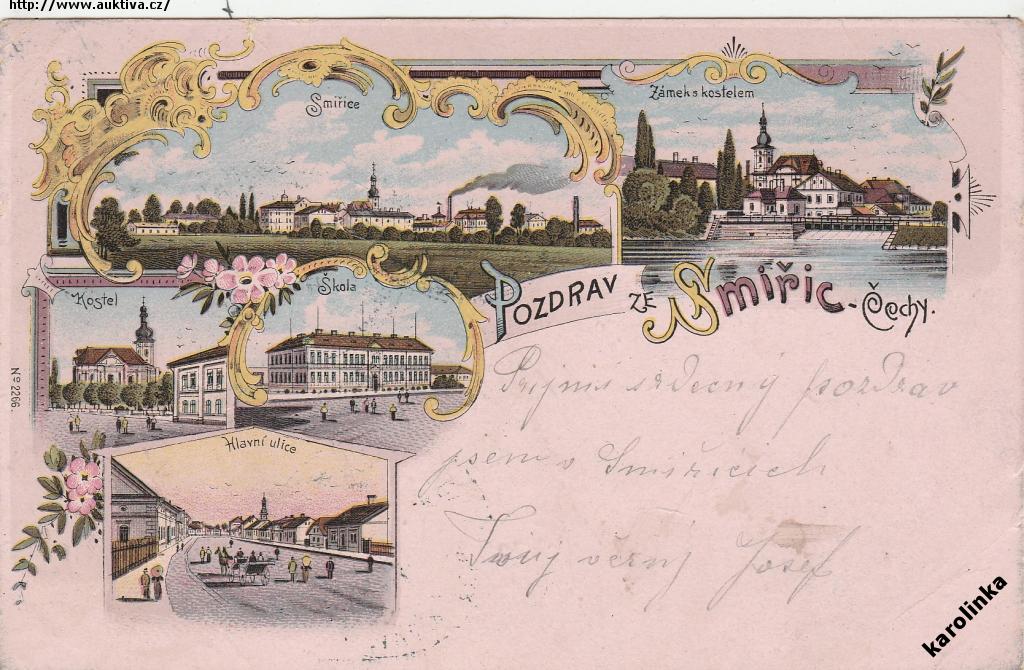 http://www.auktiva.cz/
Smiřice
Zámek s kostelem
Kostel
Škola
Pozdrav ze Smiřic - Čechy.
No 2266.
Hlavní ulice
srdečný pozdrav
jsem v Smiřicich
Tvuj věrný Josef
karolinka